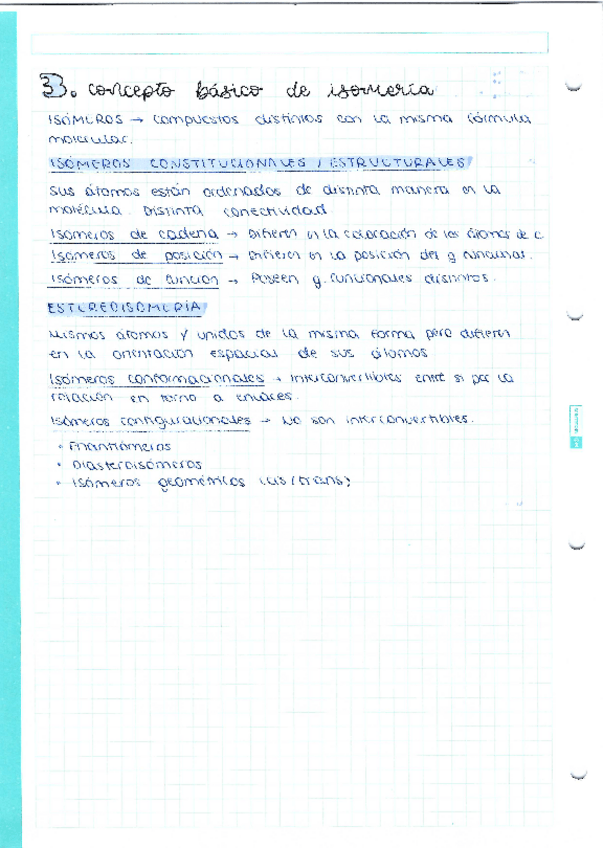 33. concepto básico de isomería
ISÓMEROS → compuestos distintos con la misma fórmula
molecular.
ISÓMEROS CONSTITUCIONALES / ESTRUCTURALES
sus átomos están ordenados de distinta manera en la
molécula. Distinta conectividad
Isómeros de cadena → Difieren en la colocación de los átomos de C.
Isómeros de posición → Difieren en la posición del g. funcional.
Isómeros de función → Poseen g. funcionales distintos.
ESTEREOISOMERÍA
Mismos átomos y unidos de la misma forma pero difieren
en la orientación espacial de sus átomos
Isómeros conformacionales → Interconvertibles entre si por la
rotación en torno a enlaces.
Isómeros configuracionales → No son interconvertibles.
• Enantiómeros
• Diasteroisómeros
• Isómeros geométricos (cis/trans)